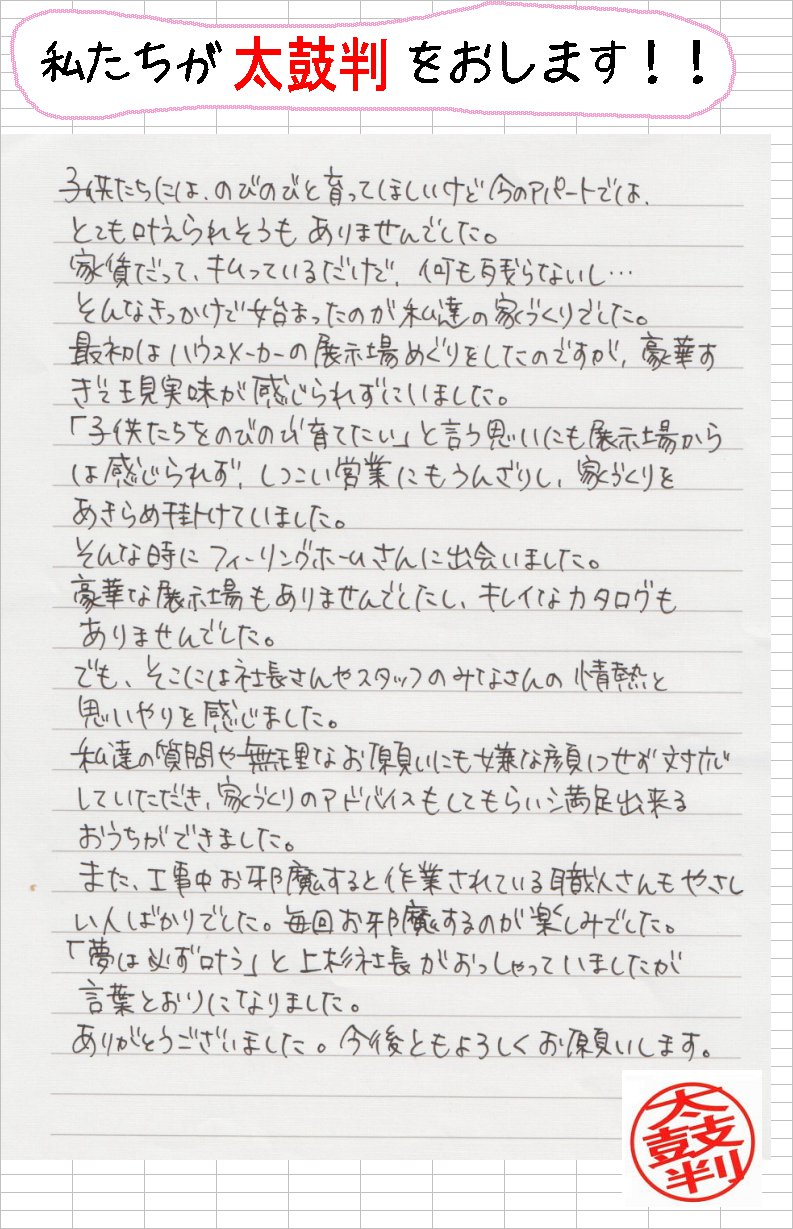 私たちが太鼓判をおします！！
子供たちには、のびのびと育ってほしいけど今のアパートでは、
とても叶えられそうもありませんでした。
家賃だって、払っているだけで、何も残らないし…
そんなきっかけで始まったのが私達の家づくりでした。
最初はハウスメーカーの展示場めぐりをしたのですが、豪華す
ぎて現実味が感じられずにいました。
「子供たちをのびのび育てたい」と言う思いにも展示場から
は感じられず、しつこい営業にもうんざりし、家づくりを
あきらめ掛けていました。
そんな時にフィーリングホームさんに出会いました。
豪華な展示場もありませんでしたし、キレイなカタログも
ありませんでした。
でも、そこには社長さんやスタッフのみなさんの情熱と
思いやりを感じました。
私達の質問や無理なお願いにも嫌な顔1つせず対応
していただき、家づくりのアドバイスもしてもらい満足出来る
おうちができました。
また、工事中お邪魔すると作業されている職人さんもやさし
い人ばかりでした。毎回お邪魔するのが楽しみでした。
「夢は必ず叶う」と上杉社長がおっしゃっていましたが
言葉とおりになりました。
ありがとうございました。今後ともよろしくお願いします。
太
鼓
判